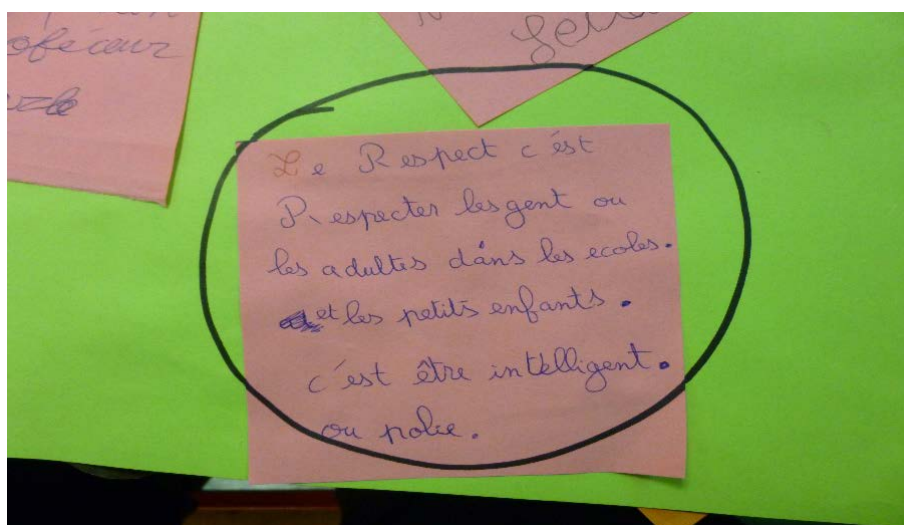 oféceur
Le Respect c'est
Respecter les gent ou
les adultes dans les ecoles.
et les petits enfants.
c'est être intelligent.
ou polie.